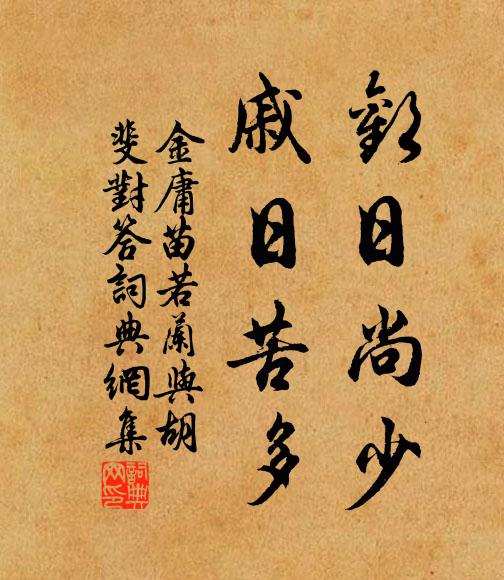 歡日尚少
戚日苦多
金庸苗若蘭與胡
斐對答詞典網集
詞典網印